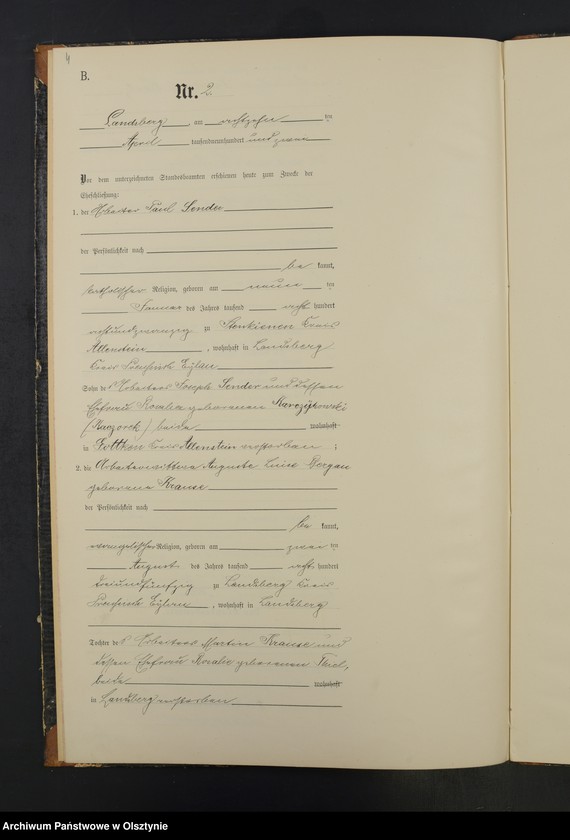 4
B.
Nr. 2
Landsberg, am achtzehn ten
April tausendneunhundert und zwei
Vor dem unterzeichneten Standesbeamten erschienen heute zum Zwecke der
Eheschließung:
1. der Arbeiter Paul Sender
der Persönlichkeit nach
be kannt,
katholischer Religion, geboren am neun ten
Januar des Jahres tausend acht hundert
achtundzwanzig zu Stenkienen Kreis
Allenstein, wohnhaft in Landsberg
Kreis Preußisch Eylau
Sohn des Arbeiters Joseph Sender und dessen
Ehefrau Rosalie geborenen
(Kaczorek) beide wohnhaft
in Kreis Allenstein verstorben;
2. die Arbeiterwittwe Auguste Luise Bergau
geborene Krause
der Persönlichkeit nach
be kannt,
evangelischer Religion, geboren am zwei ten
August des Jahres tausend acht hundert
dreiundfünfzig zu Landsberg Kreis
Preußisch Eylau, wohnhaft in Landsberg
Tochter des Arbeiters Martin Krause und
dessen Ehefrau Rosalie geborenen Thiel,
beide wohnhaft
in Landsberg verstorben
Archiwum Państwowe w Olsztynie